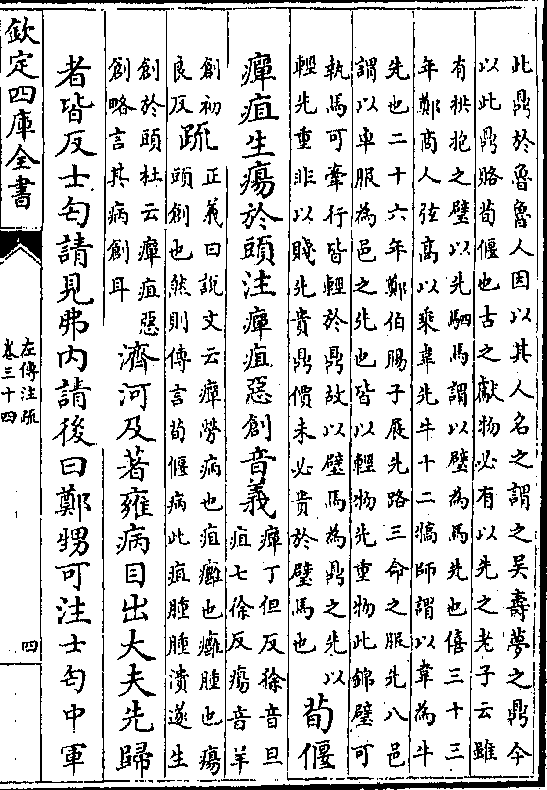 此鼎於魯魯人因以其人名之謂之吳壽夢之鼎今
以此鼎賂荀偃也古之獻物必有以先之老子云雖
有拱抱之璧以先駟馬謂以璧為馬先也僖三十三
年鄭商人弦高以乘韋先牛十二犒師謂以韋為牛
先也二十六年鄭伯賜子展先路三命之服先八邑
謂以車服為邑之先也皆以輕物先重物此錦璧可
執馬可牽行皆輕於鼎故以璧馬為鼎之先以
輕先重非以賤先貴鼎價未必貴於璧馬也
荀偃
癉疽生瘍於頭注癉疽惡創音義
癉丁但反徐音旦
疽七徐反瘍音羊
創初
良反
疏
正義曰說文云癉勞病也疽癰也癰腫也瘍
頭創也然則傳言荀偃病此疽腫腫潰遂生
創於頭杜云癉疽惡
創略言其病創耳
濟河及著雍病目出大夫先歸
者皆反士匄請見弗内請後曰鄭甥可注士匄中軍
欽定四庫全書
左傳注疏
卷三十四
四